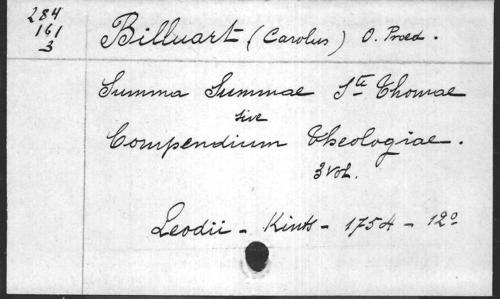 284
161
3
Billuart (Carolus) O. Praed.
Summa Summae Sti Thomae
sive
Compendium Theologiae.
3 vol.
Leodii - Kints - 1754 - 12º